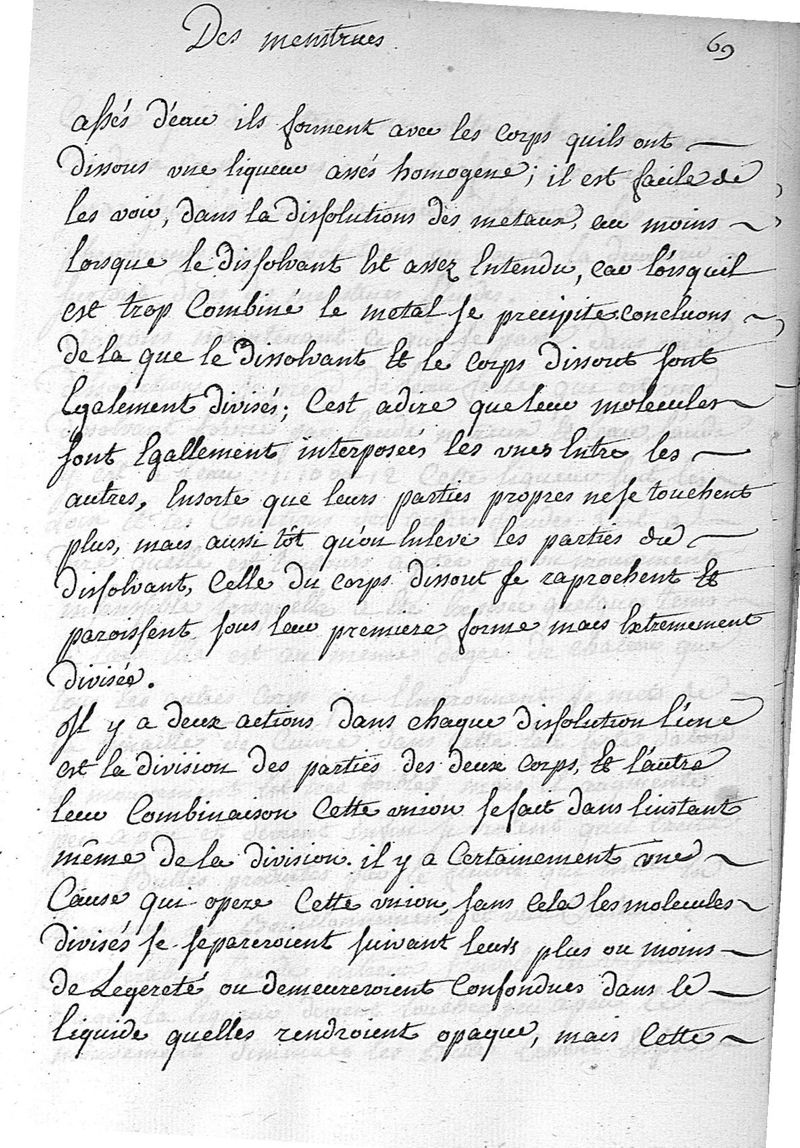 Des menstrues
69
assés d'eau ils forment avec les corps quils ont
dissous une liqueur assés homogene; il est facile de
les voir, dans la dissolutions des metaux, au moins
lorsque le dissolvant Est assez Entendu, car lorsquil
est trop Combiné le metal se precipite. concluons
de la que le Dissolvant Et le corps dissout sont
Egalement divisés; C'est adire que leur molecules
sont Egallement interposées les unes Entre les
autres, Ensorte que leurs parties propres ne se touchent
plus, mais aussi tôt quon Enleve les parties du
dissolvant, Celle du corps dissout se raprochent Et
paroissent sous leur premiere forme mais Extremement
divisée.
Il y a deux actions dans chaque dissolution l'une
est la division des parties des deux corps, Et l'autre
leur Combinaison Cette union se fait dans l'instant
même de la division. il y a Certainement une
Cause qui opere Cette union, sans Cela les molecules
divisés se separeroient suivant leurs plus ou moins
de Legereté ou demeureroient Confondues dans le
liquide quelles rendroient opaque, mais Cette